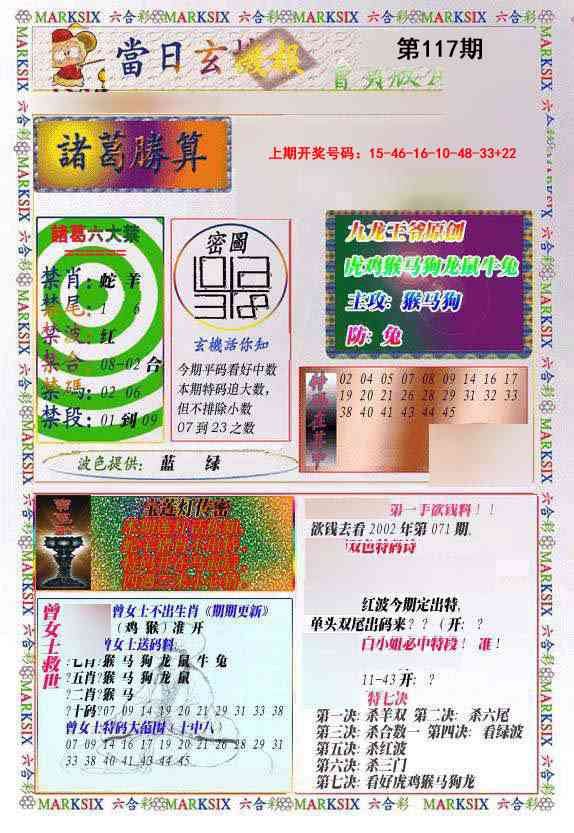 MARKSIX 六合彩 MARKSIX 六合彩 MARKSIX 六合彩 MARKSIX
當日玄機報
第117期
諸葛勝算
上期开奖号码：15-46-16-10-48-33+22
諸葛六大禁
禁肖：蛇 羊
禁尾：1 6
禁波：红
禁合：08-02 合
禁碼：02 06
禁段：01 到 09
密圖
玄機活你知
今期平码看好中数
本期特码追大数，
但不排除小数
07 到 23 之数
九龙王爷原创
虎鸡猴马狗龙鼠牛兔
主攻：猴马狗
防：兔
02 04 05 07 08 09 14 16 17
19 20 21 26 28 29 31 32 33
38 40 41 43 44 45
波色提供： 蓝 绿
宝莲灯传密
第一手欲钱料！！
欲钱去看 2002 年第 071 期.
双色特码诗
红波今期定出特,
单头双尾出码来？？（开：？
白小姐必中特段！ 准！
11-43 开：？
特七决
第一决：杀羊双 第二决：杀六尾
第三决：杀合数一 第四决：看绿波
第五决：杀红波
第六决：杀三门
第七决：看好虎鸡猴马狗龙
曾女士救世
曾女士不出生肖《期期更新》
（鸡 猴）准 开
曾女士送码料
?七肖?猴 马 狗 龙 鼠 牛 兔
?五肖?猴 马 狗 龙 鼠
?二肖?猴 马
?十码?07 09 14 19 20 21 29 31 33 38
曾女士特码大范围（十中八）
07 09 14 16 17 19 20 21 26 28 29 31
33 38 40 41 43 44 45
MARKSIX 六合彩 MARKSIX 六合彩 MARKSIX 六合彩 MARKSIX